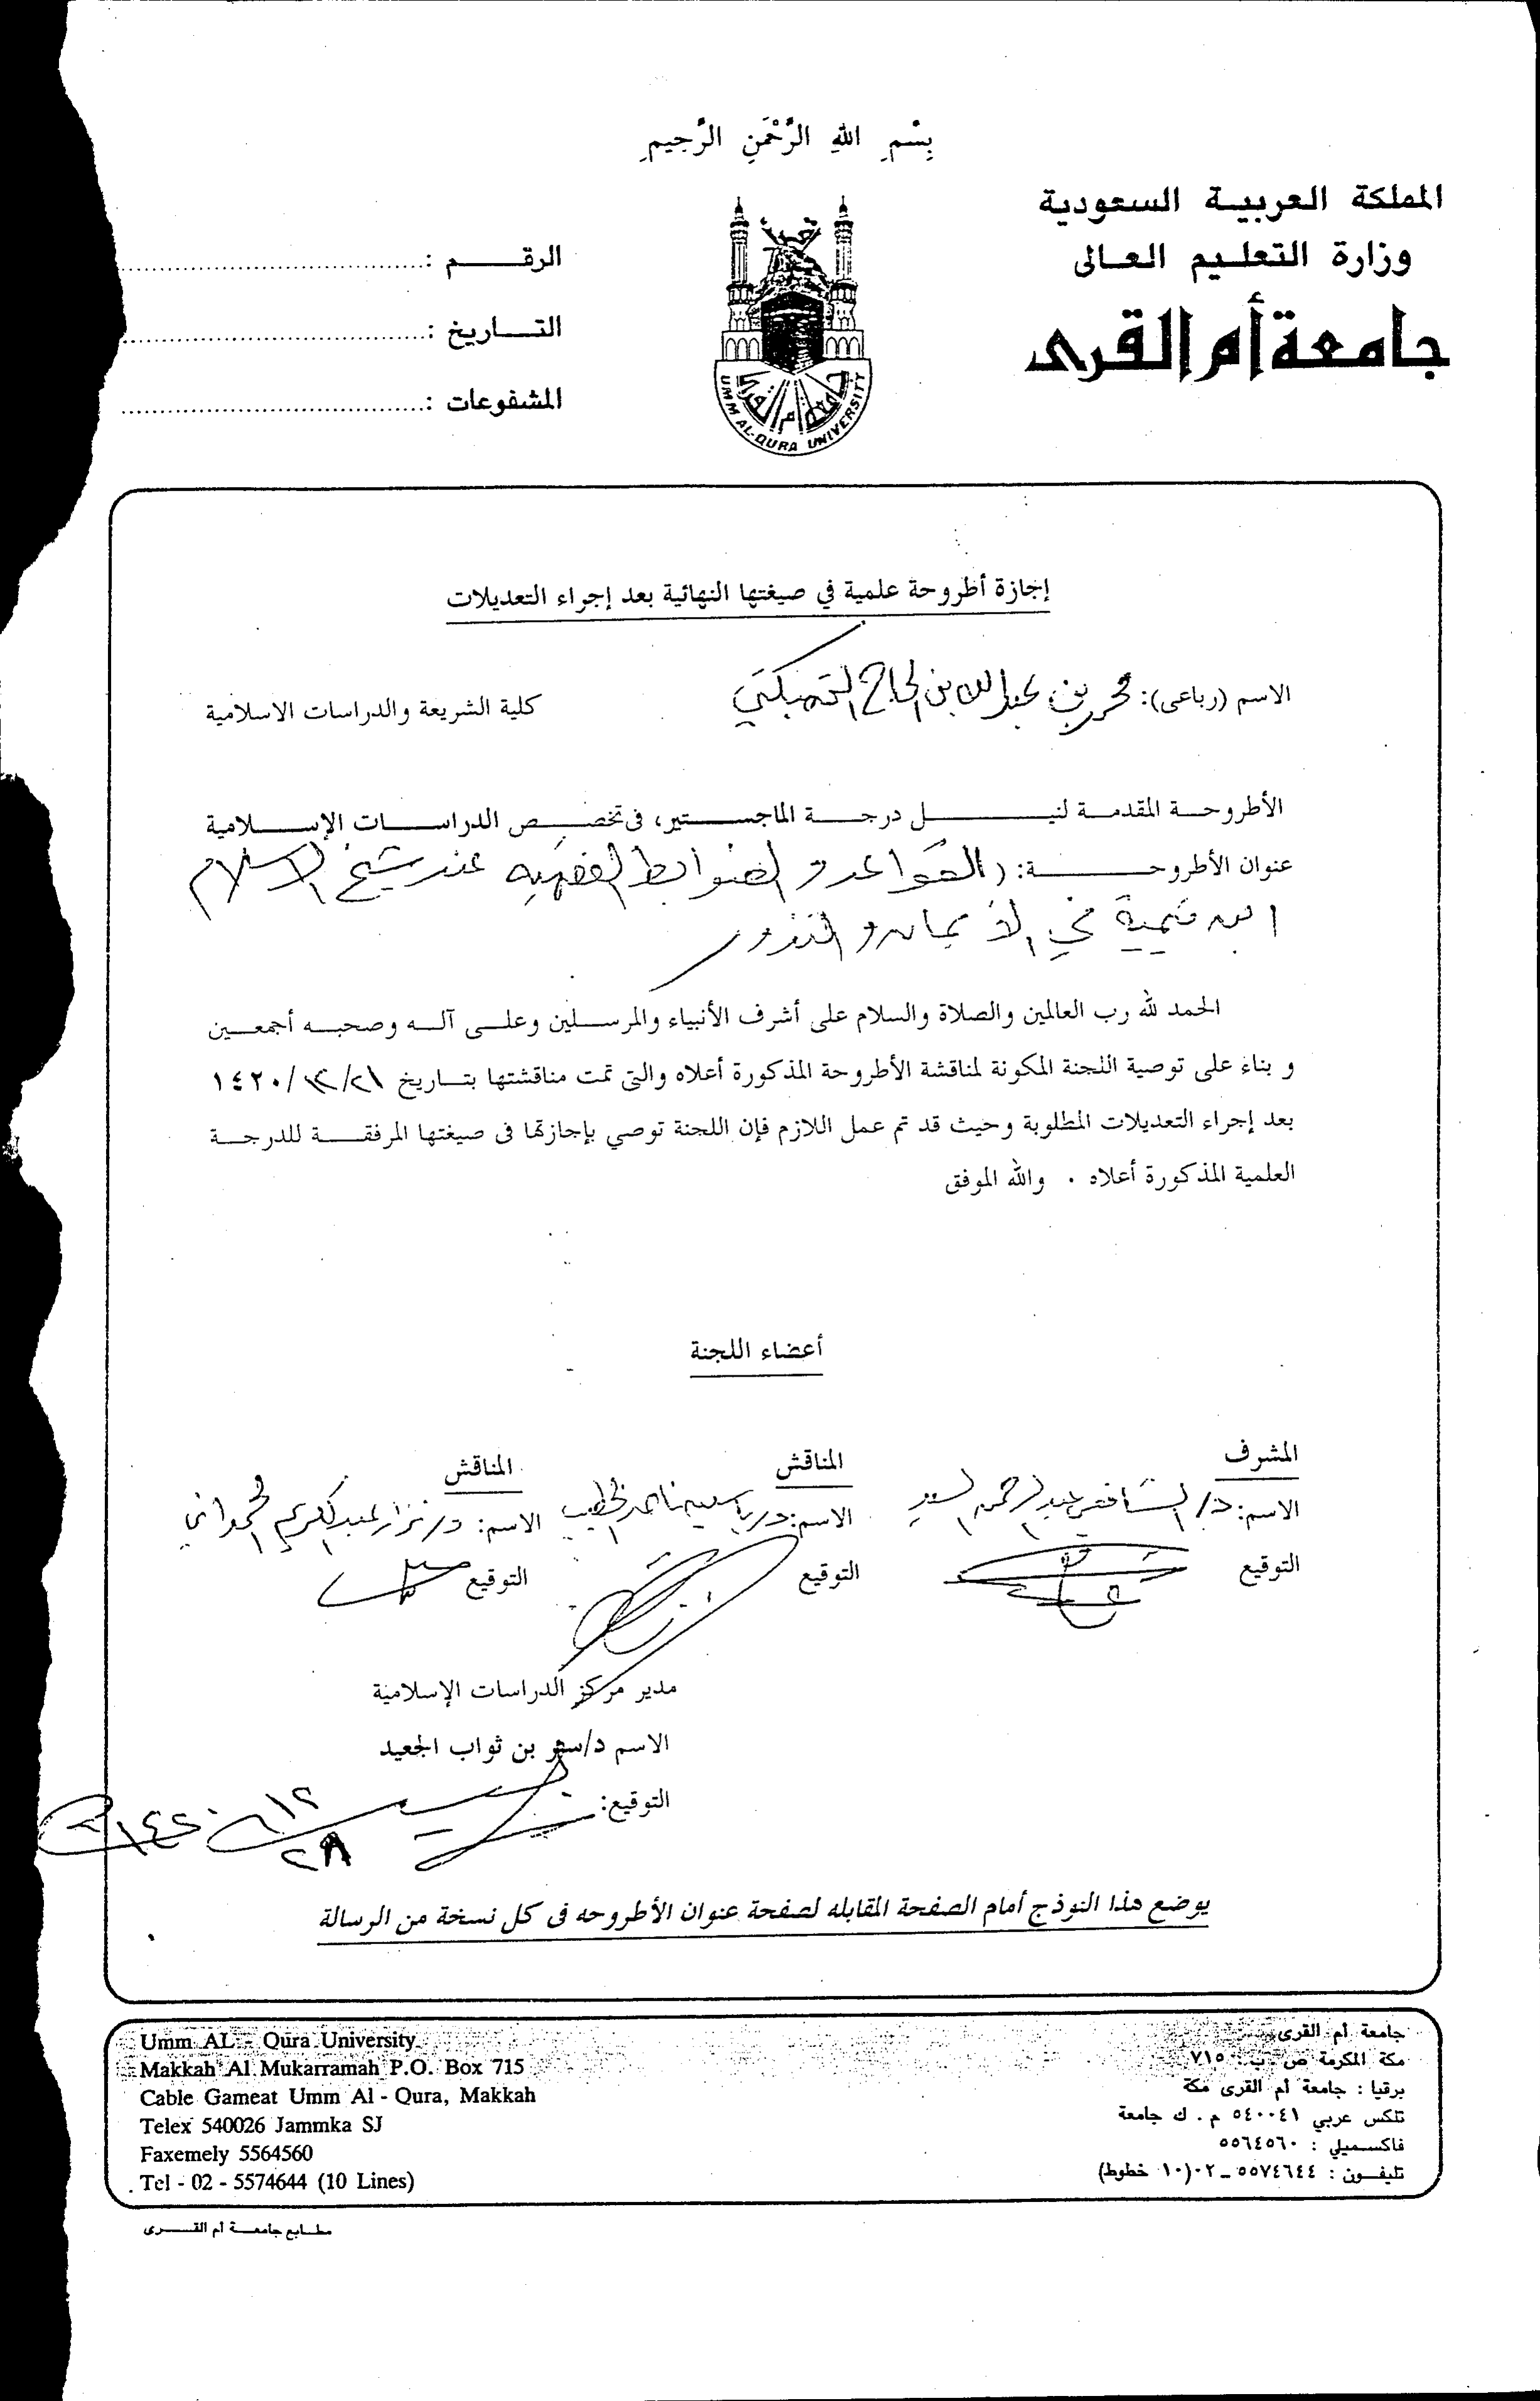 بِسْمِ اللهِ الرَّحْمَنِ الرَّحِيمِ
المملكة العربية السعودية
وزارة التعليم العالى
جامعة أم القرى
الرقم :
التاريخ :
المشفوعات :
جامعة أم القرى
UMM AL-QURA UNIVERSITY
إجازة أطروحة علمية في صيغتها النهائية بعد إجراء التعديلات
الاسم (رباعى): محمد بن عبدالله بن الحاج التمبكتي كلية الشريعة والدراسات الاسلامية
الأطروحة المقدمة لنيل درجة الماجستير، فى تخصص الدراسات الإسلامية
عنوان الأطروحة: (القواعد والضوابط الفقهية عند شيخ الاسلام
ابن تيمية في الأيمان والنذور
الحمد لله رب العالمين والصلاة والسلام على أشرف الأنبياء والمرسلين وعلى آله وصحبه أجمعين
و بناء على توصية اللجنة المكونة لمناقشة الأطروحة المذكورة أعلاه والتى تمت مناقشتها بتاريخ ١٤٢٠/
بعد إجراء التعديلات المطلوبة وحيث قد تم عمل اللازم فإن اللجنة توصي بإجازتها فى صيغتها المرفقة للدرجة
العلمية المذكورة أعلاه . والله الموفق
أعضاء اللجنة
المشرف المناقش المناقش
الاسم: د/ الشافعي عبدالرحمن السيد الاسم: د/ ياسين ناصر الخطيب الاسم: د/ نزار عبدالكريم الحمداني
التوقيع التوقيع التوقيع
مدير مركز الدراسات الإسلامية
الاسم د/ستر بن ثواب الجعيد
التوقيع:
يوضع هذا النوذج أمام الصفحة المقابله لصفحة عنوان الأطروحه فى كل نسخة من الرسالة
Umm AL - Qura University
Makkah Al Mukarramah P.O. Box 715
Cable Gameat Umm Al - Qura, Makkah
Telex 540026 Jammka SJ
Faxemely 5564560
Tel - 02 - 5574644 (10 Lines)
جامعة أم القرى
مكة المكرمة ص . ب : ٧١٥
برقيا : جامعة أم القرى مكة
تلكس عربي ٥٤٠٠٤١ م . ك جامعة
فاكسميلي : ٥٥٦٤٥٦٠
تليفون : ٥٥٧٤٦٤٤ - ٠٢ (١٠ خطوط)
مطابع جامعة أم القرى